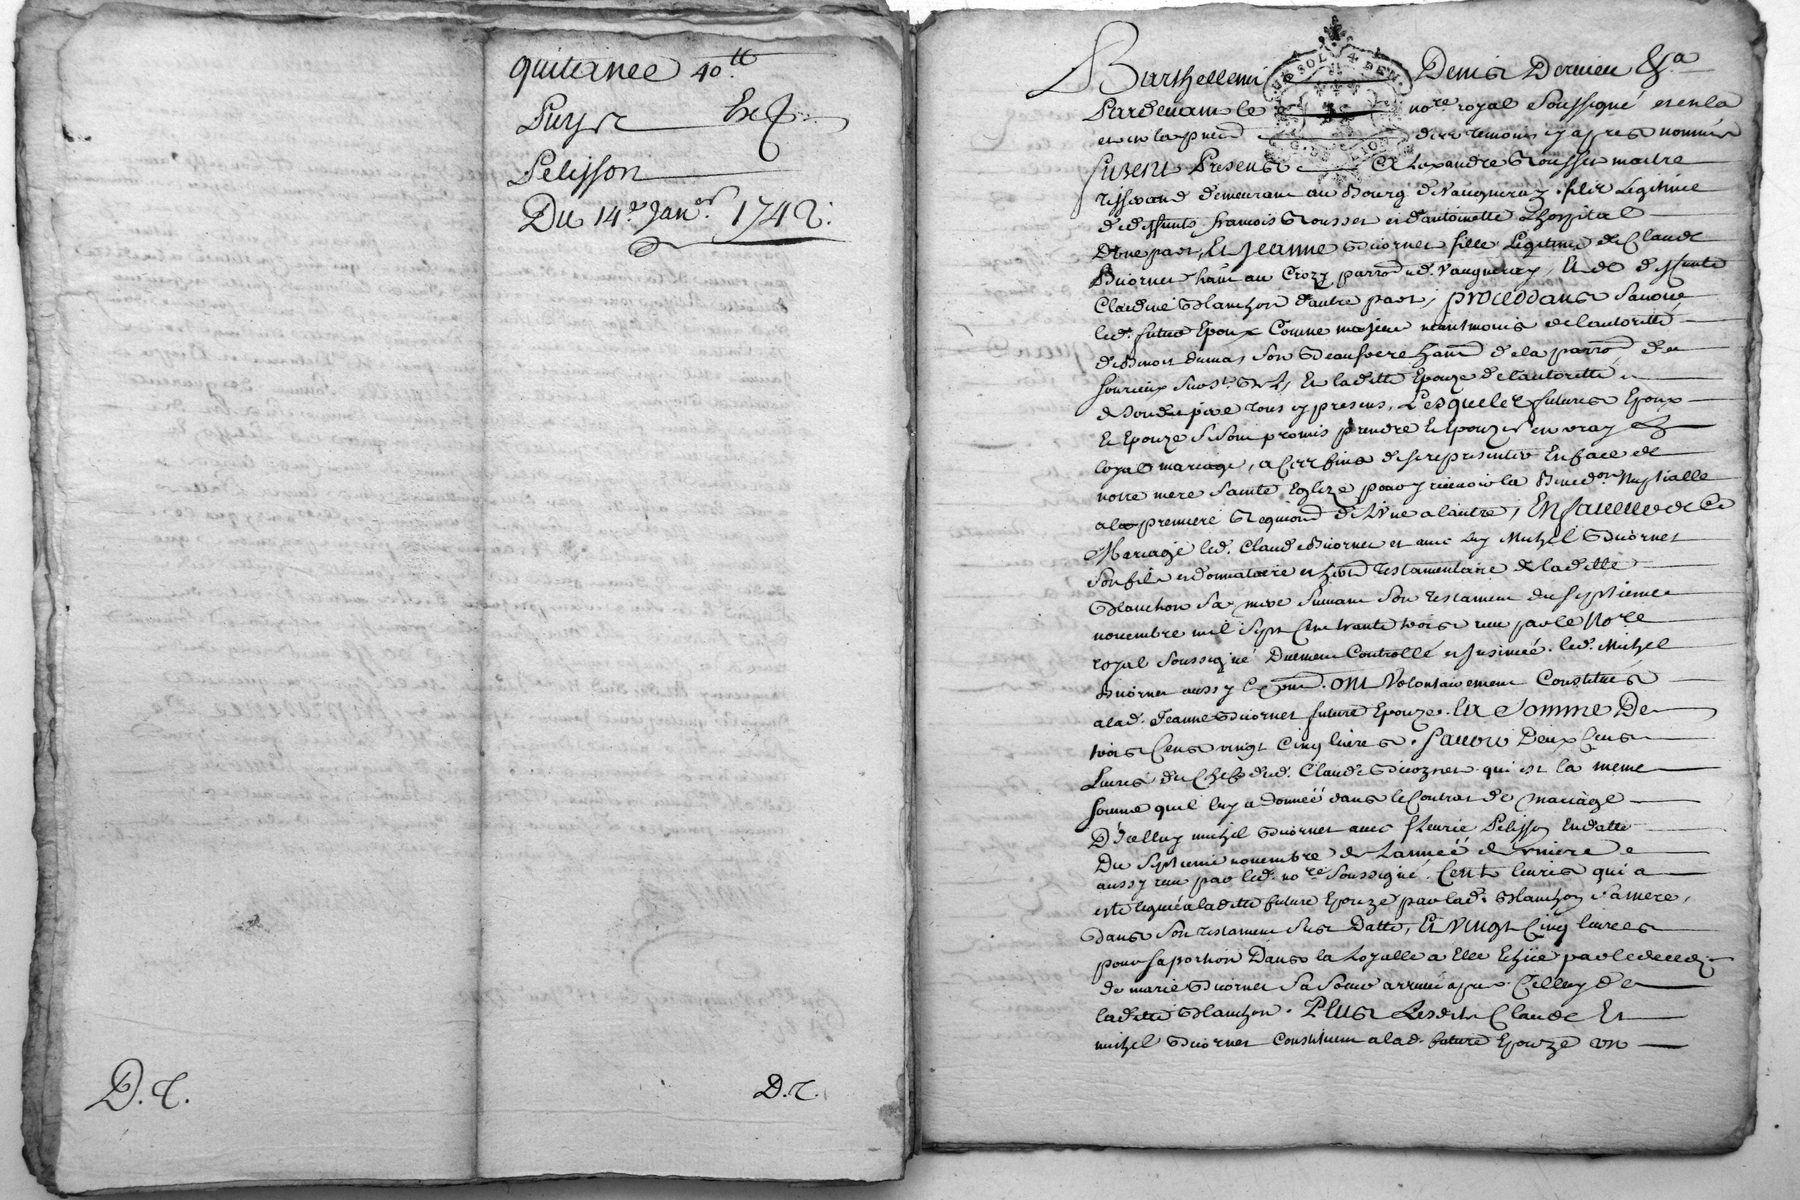 quittance 40tt
Puys Ex
Pelisson
Du 14e Janer 1742.
D. C.
D. C.
Barthellemi Denis Dervieu &a
Pardevant le nore royal Soussigné
et en la pnce des temoins cy apres nommés
furent Presens Alexandre Rousset maitre
tisserand demeurant au Bourg de Vaugneray, fils Légitime
de deffunts francois Rousset et d'antoinette Lhopital
D'une part, Et Jeanne Guiornet fille Légitime de Claude
Guiornet hant au Crozy parroe de Vaugneray, Et de deffunte
Claudine Blanchon d'autre part, proceddans Savoir
led. futur Epoux Comme majeur neantmoins de l'autorité
de Benoit dumas Son Beaufrere hant de la parroe de
Et laditte Epouze de l'autorité
de Sondit pere tous cy presens, Lesquels futurs Epoux
Et Epouze Se Sont promis prendre Et Epouzer en vray &
loyal mariage, a Ces fins de se representer En face de
notre mere Sainte Eglize pour y recevoir la Bened.on Nuptialle
a la premiere Requion de L'une a l'autre, En faveur de Ce
Mariage led. Claude Guiornet et avec luy Michel Guiornet
Son fils et donnataire et herit testamentaire de laditte
Blanchon Sa mere Suivant Son testament du Septieme
novembre mil Sept Cent trante trois reçu par le Nore
royal Soussigné Duement Controllé et Insinué. led. Michel
Guiornet aussy Cy pnt. ont Volontairement Constitués
a lad. Jeanne Guiornet future Epouze. la Somme De
trois Cens vingt Cinq livres. Savoir Deux Cens
Livres du Chef dud. Claude Guiornet qui est la meme
Somme quil luy a donnéé dans le Contrat de mariage
D'icelluy michel Guiornet avec fleurie Pelisson En datte
Du Septieme novembre de L'annéé derniere
aussy reçu par led. nore Soussigné. Cent livres qui a
esté leguéé a laditte future Epouze par lad. Blanchon Sa mere,
dans Son testament Sus Datté, Et vingt Cinq livres
pour Sa portion Dans la Loyalle a Elle Echüe par le decedz
de marie Guiornet Sa Soeur arrivé apres Celluy de
laditte Blanchon. Plus Lesdits Claude Et
michel Guiornet Constituent a lad. future Epouze un